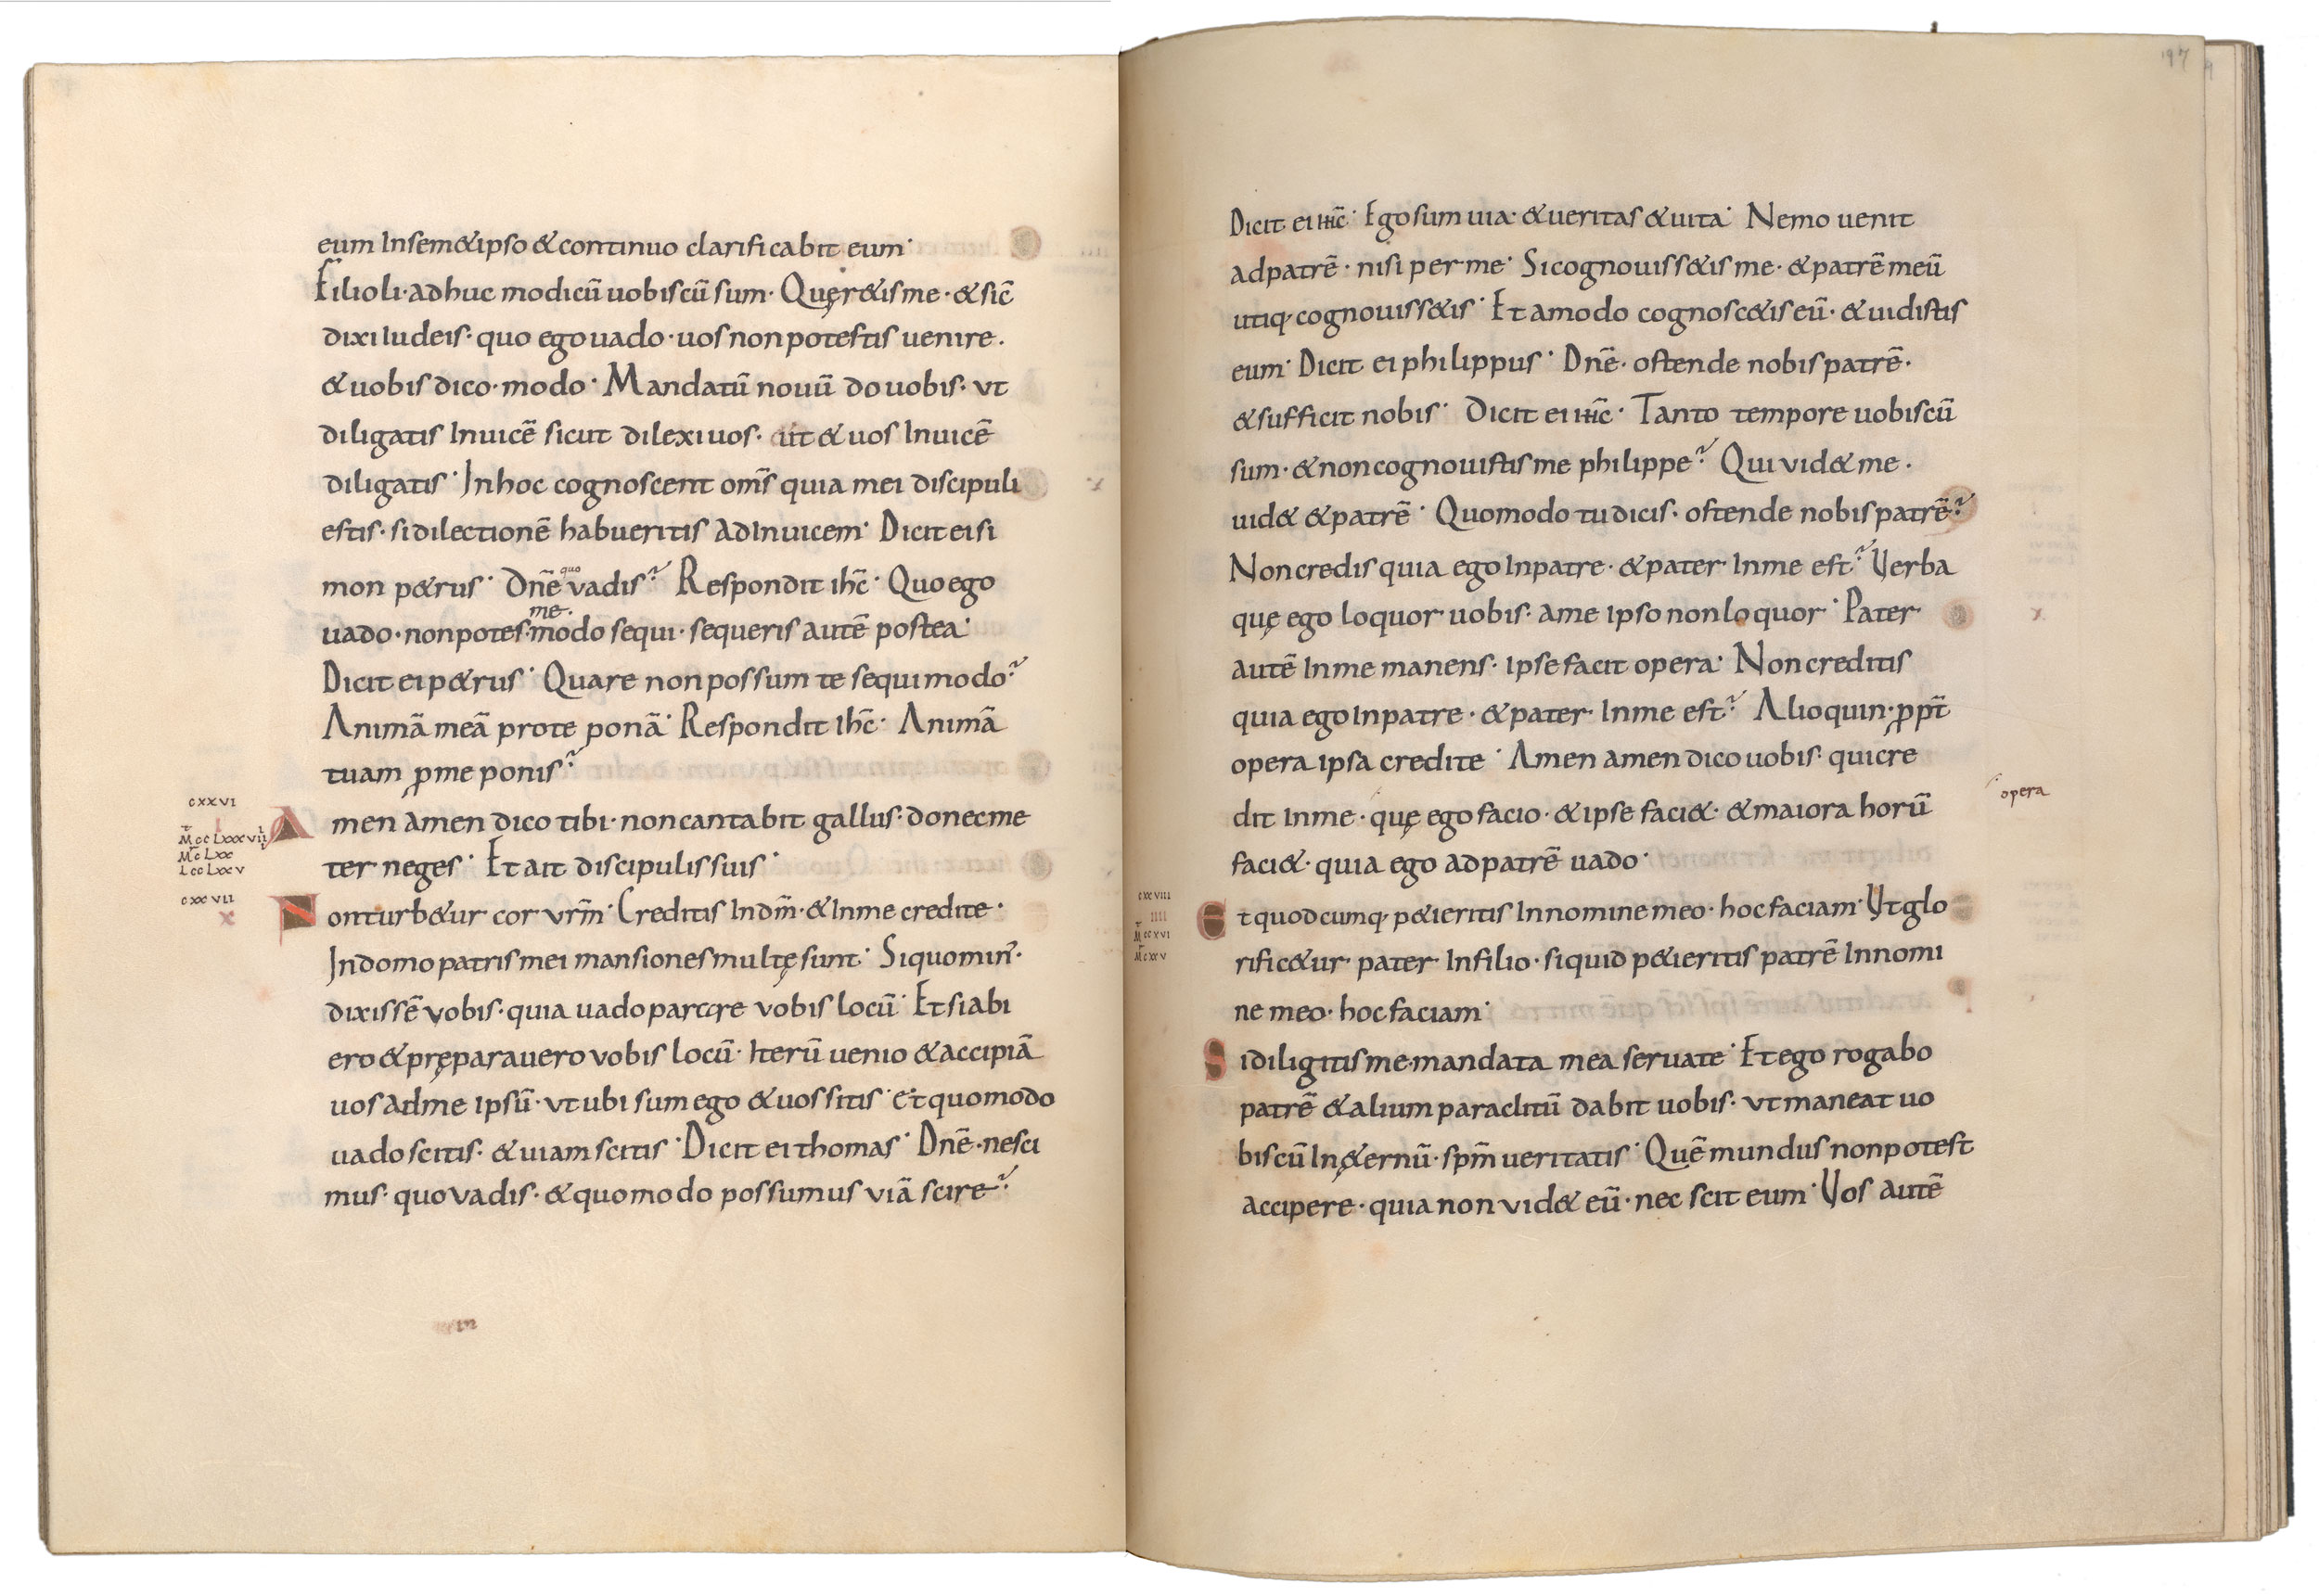 eum Insem&ipso &continuo clarificabit eum·
Filioli·adhuc modicū uobiscū sum· Quęr&is me·&sic̄
dixi Iudeis· quo ego uado·uos non potestis uenire.
&uobis dico·modo· Mandatū nouū do uobis· vt
diligatis Inuicē sicut dilexi uos· ut & uos Inuicē
diligatis· In hoc cognoscent om̄s quia mei discipuli
estis· si dilectionē habueritis ad Inuicem· Dicit ei si
quo
mon p&rus· Dn̄e vadis? Respondit ih̄c· Quo ego
me·
uado·non potes·modo sequi·sequeris autē postea·
Dicit ei p&rus· Quare non possum te sequi modo?
Animā meā pro te ponā· Respondit Ih̄c· Animā
tuam ꝓme ponis?
cxxvi
Amen amen dico tibi·non cantabit gallus·donec me
ter neges· Et ait discipulis suis·
cxxvii
x
Non turb&ur cor vrm̄· Creditis In dm̄·&In me credite·
In domo patris mei mansiones multę sunt· Si quo min̄·
dixissē vobis·quia uado parare vobis locū· Et si abi
ero &pręparauero vobis locū· Iterū uenio &accipiā
uos ad me ipsū·vt ubi sum ego &uos sitis· et quomodo
uado scitis·&uiam scitis· Dicit ei thomas· Dn̄e·nesci
mus·quo vadis·&quomodo possumus viā scire?
97
Dicit ei ih̄c· Ego sum uia·&ueritas &uita· Nemo uenit
ad patrē·nisi per me· Si cognouiss&is me·&patrē meū
utiq· cognouiss&is· Et amodo cognosc&is eū·&uidistis
eum· Dicit ei philippus· Dn̄e·ostende nobis patrē·
&sufficit nobis· Dicit ei ih̄c· Tanto tempore uobiscū
sum·&non cognouistis me philippe? Qui vid& me·
uid& &patrē· Quomodo tu dicis·ostende nobis patrē?
Non credis quia ego In patre·&pater In me est? Verba
quę ego loquor uobis·a me ipso non loquor· Pater
autē In me manens·ipse facit opera· Non creditis
quia ego In patre·&pater In me est? Alioquin·ꝓpt̄
opera ipsa credite· Amen amen dico uobis·qui cre
dit In me·quę ego facio·&ipse faci&·&maiora horū
opera
faci&·quia ego ad patrē uado·
cxxviii
IIII
Et quodcumq· p&ieritis In nomine meo·hoc faciam· Vt glo
rific&ur pater In filio·si quid p&ieritis patrē In nomi
ne meo·hoc faciam·
Si diligitis me·mandata mea seruate· Et ego rogabo
patrē &alium paraclitū dabit uobis·vt maneat uo
biscū In ę&ernū·spm̄ ueritatis· Quē mundus non potest
accipere·quia non vid& eū·nec scit eum· Vos autē